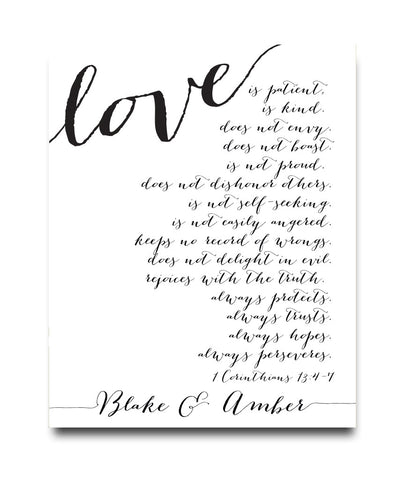 love
is patient,
is kind.
does not envy.
does not boast.
is not proud.
does not dishonor others.
is not self-seeking.
is not easily angered.
keeps no record of wrongs.
does not delight in evil.
rejoices with the truth.
always protects.
always trusts.
always hopes.
always perseveres.
1 Corinthians 13:4-7
Blake & Amber